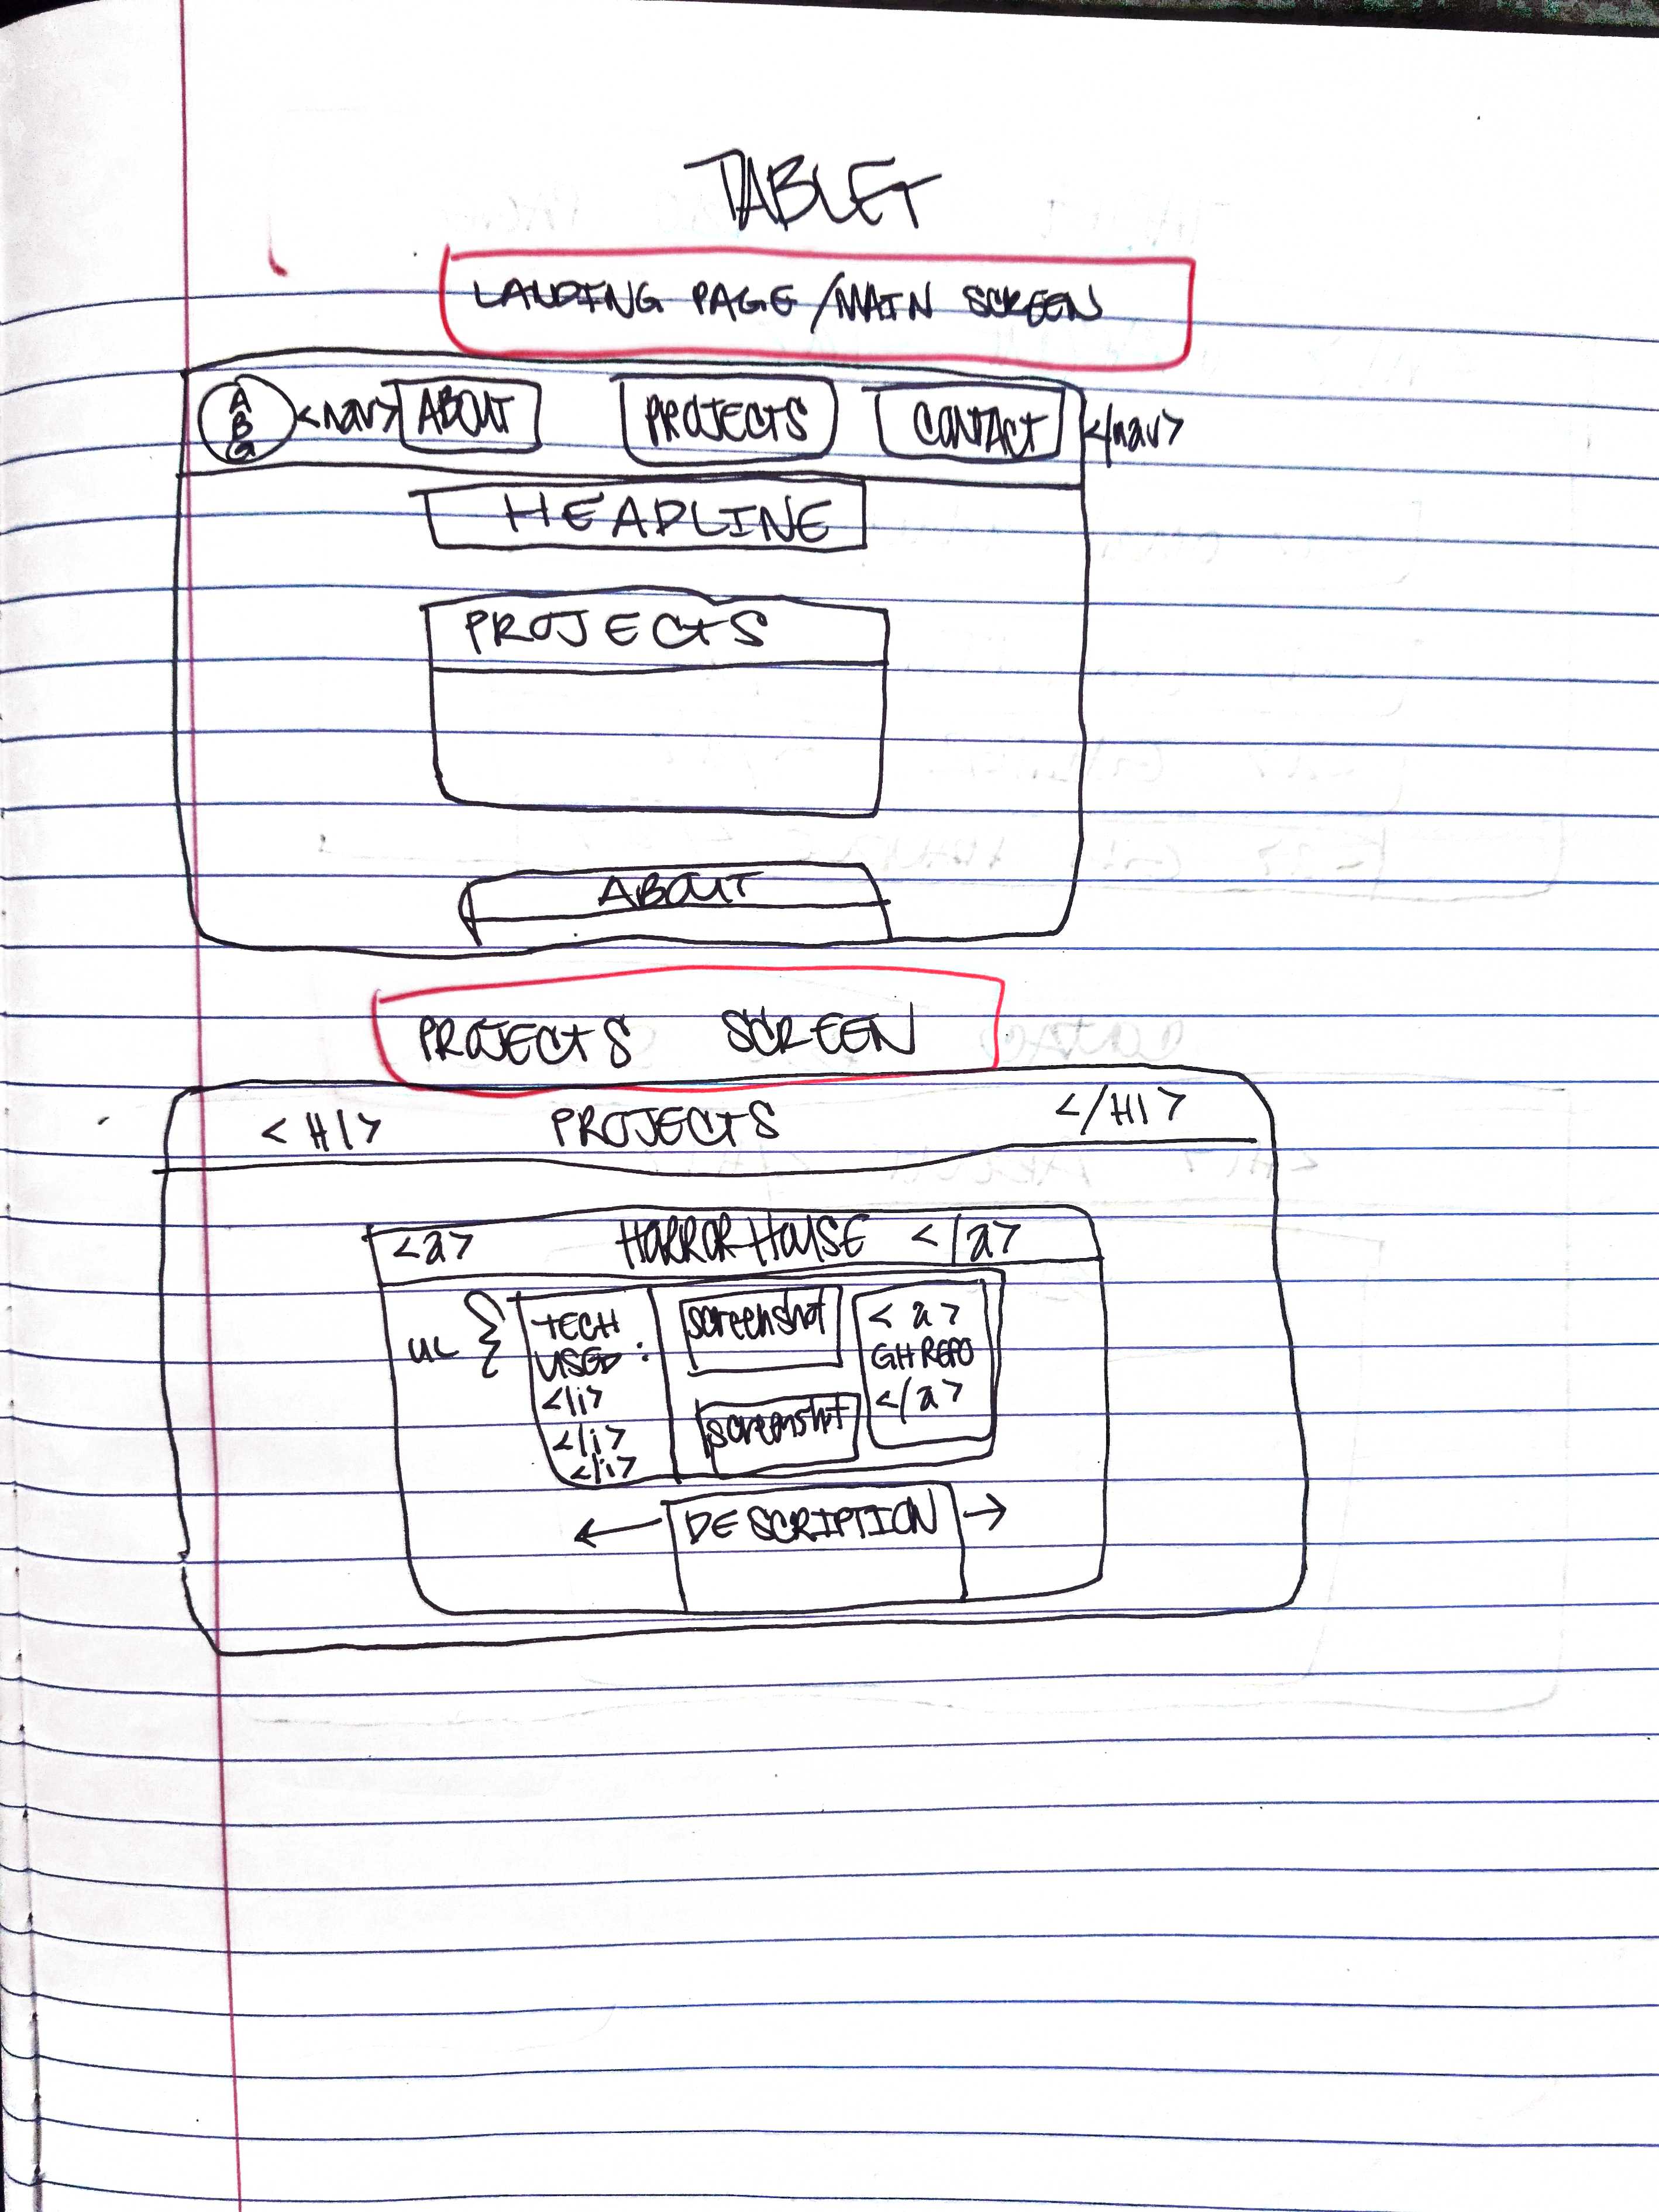 TABLET
LANDING PAGE/MAIN SCREEN
A
B
G
<nav> ABOUT PROJECTS CONTACT </nav>
HEADLINE
PROJECTS
ABOUT
PROJECTS SCREEN
<H1> PROJECTS </H1>
<a> HORROR HOUSE </a>
UL { TECH USED:
</i>
</i>
</i>
screenshot
screenshot
<a>
GH REPO
</a>
← DESCRIPTION →